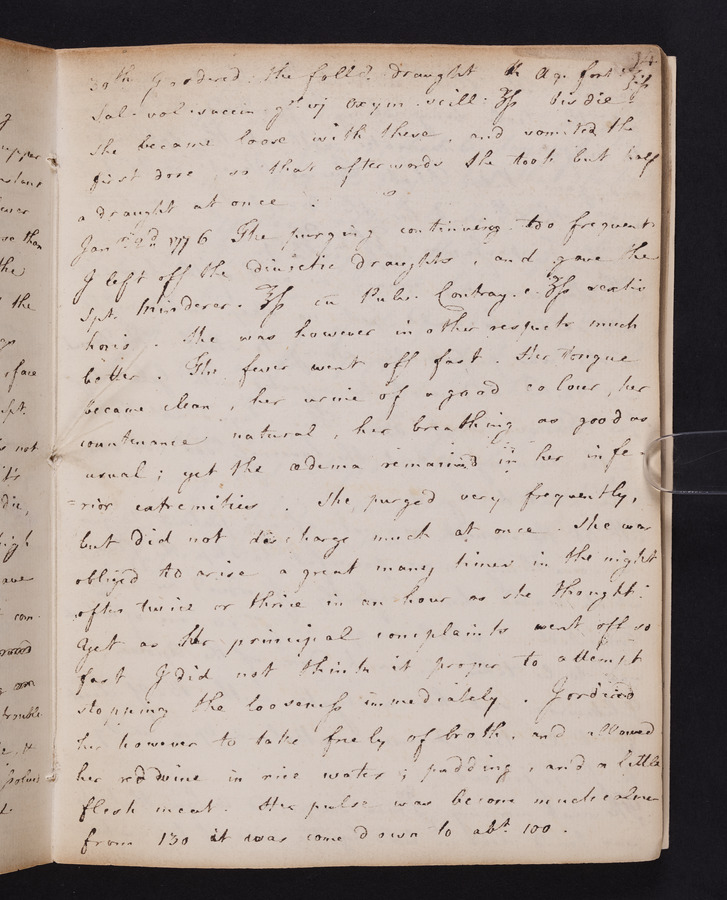 14
30th I ordered the follg. draught Aq. font. ℥iſs
Sal. vol. succin. gr. vj Oxym. scill. ʒſs bis die.
She became loose with these, and vomited the
first dose so that afterwords she took but half
a draught at once.
Janry. 2d. 1776 The purging continuing too frequent
I left off the diuretic draughts, and gave the
Spt. Minderer. ℥ſs cū Pulv. Contray. c. ℈ſs sextis
horis. She was however in other respects much
better. The fever went off fast. Her Tongue
became clean, her urine of a good colour, her
countenance natural, her breathing as good as
usual; yet the œdema remained in her infe-
=rior extremities. She purged very frequently,
but did not discharge much at once. She was
obliged to arise a great many times in the night
often twice or thrice in an hour as she thought.
Yet as her principal complaints went off so
fast I did not think it proper to attempt
stopping the looseneſs immediately. I ordered
her however to take freely of broth, and allowed
her red wine in rice water; pudding, and a little
flesh meat. Her pulse was become much calmer
from 130 it was come down to abt. 100.